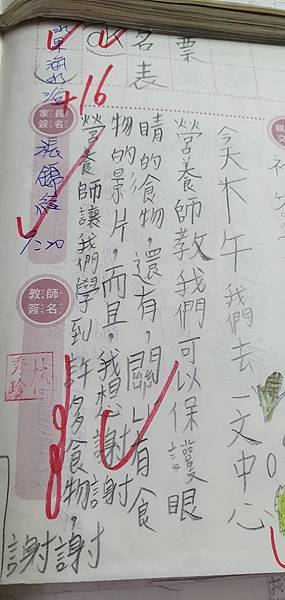 票
名
表
今天下午我們去一文中心
營養師教我們可以保護眼
睛的食物，還有，關心有食
物的景片，而且，我想謝謝
營養師讓我們學到許多食物，
謝謝
+16
家長簽名
9/20
教師簽名
林
秀珍